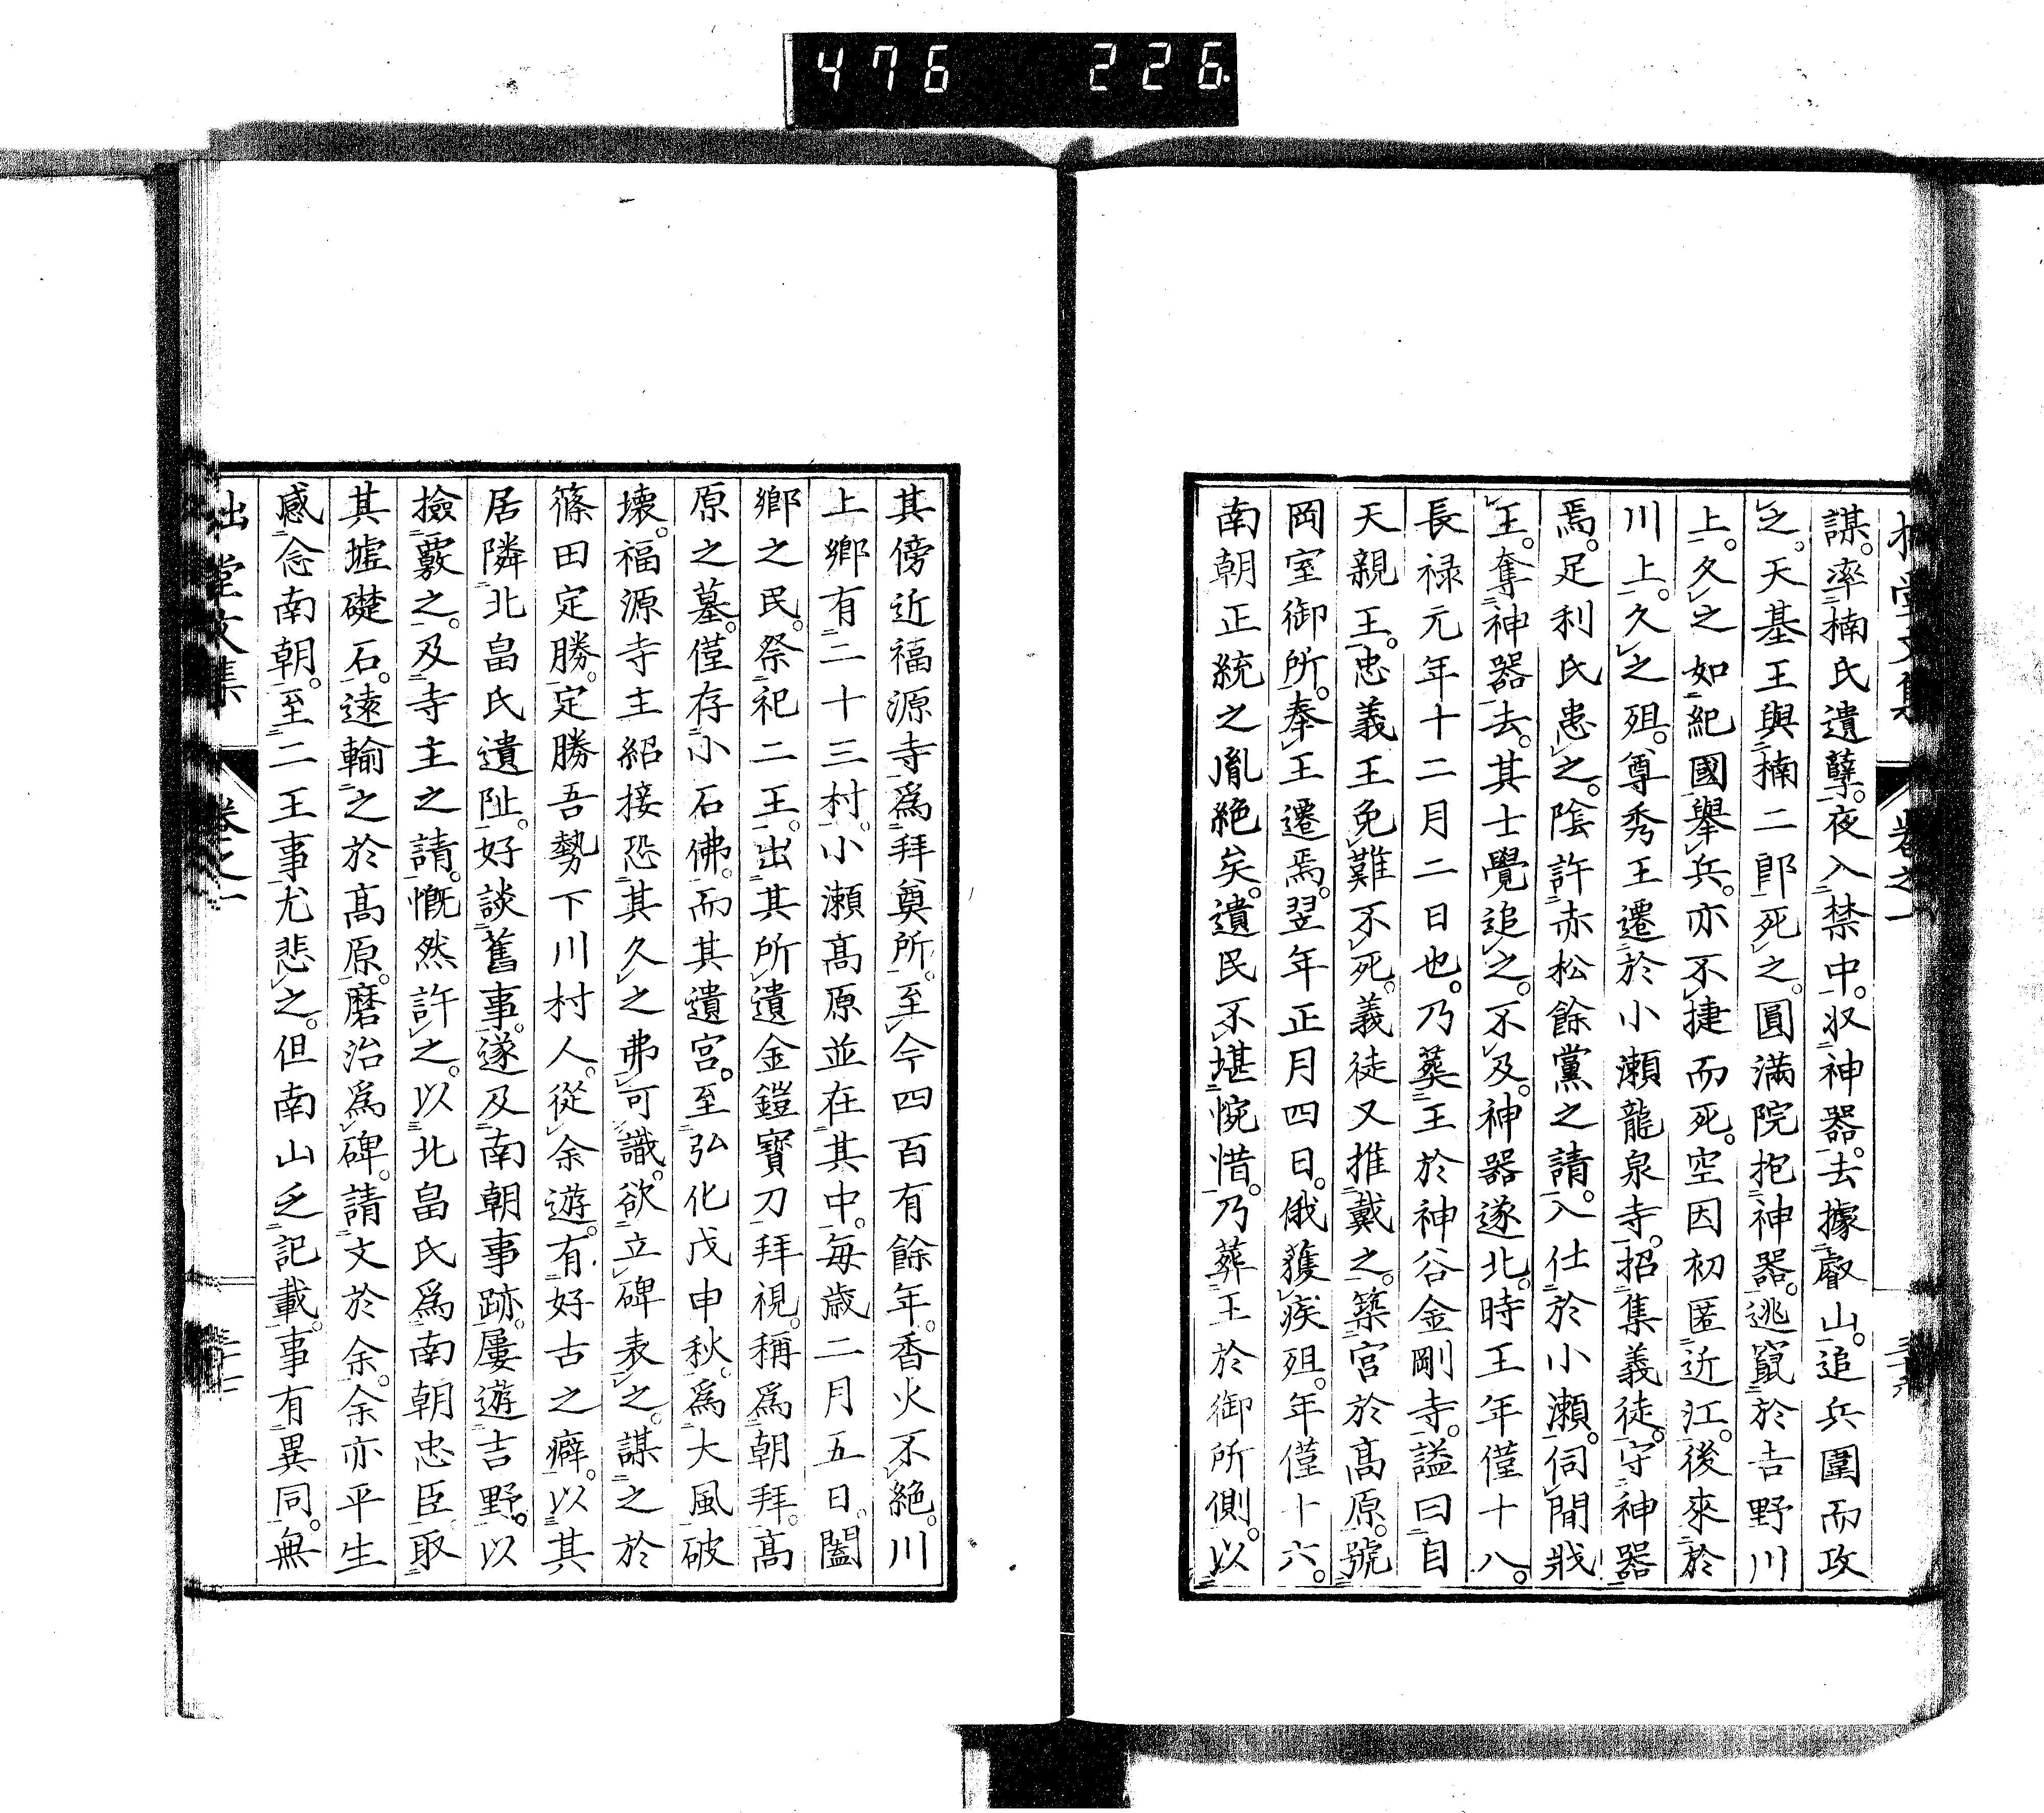 476 226
謀。率楠氏遺孽。夜入禁中。収神器。去據叡山。追兵圍而攻
之。天基王與楠二郎死之。圓滿院抱神器。逃竄於吉野川
上。久之如紀國舉兵。亦不捷而死。空因初匿近江。後來於
川上。久之殂。尊秀王遷於小瀬龍泉寺。招集義徒。守神器
焉。足利氏患之。陰許赤松餘黨之請。入仕於小瀬。伺間戕
王。奪神器去。其士覺追之。不及。神器遂北。時王年僅十八。
長禄元年十二月二日也。乃葬王於神谷金剛寺。謚曰自
天親王。忠義王免難不死。義徒又推戴之。築宮於髙原。號
岡室御所。奉王遷焉。翌年正月四日。俄獲疾殂。年僅十六。
南朝正統之胤絶矣。遺民不堪惋惜。乃葬王於御所側。以
其傍近福源寺爲拜奠所。至今四百有餘年。香火不絶。川
上鄉有二十三村。小瀬髙原並在其中。毎歳二月五日。闔
鄉之民。祭祀二王。出其所遺金鎧寶刀拜視。稱爲朝拜。髙
原之墓。僅存小石佛。而其遺宮。至弘化戊申秋。爲大風破
壊。福源寺主紹接恐其久之弗可識。欲立碑表之。謀之於
篠田定勝。定勝吾勢下川村人。從余遊。有好古之癖。以其
居隣北畠氏遺阯。好談舊事。遂及南朝事跡。屢遊吉野。以
撿覈之。及寺主之請。慨然許之。以北畠氏爲南朝忠臣。取
其墟礎石。遠輸之於髙原。磨治爲碑。請文於余。余亦平生
感念南朝。至二王事尤悲之。但南山乏記載。事有異同。無
拙堂文集 卷之一